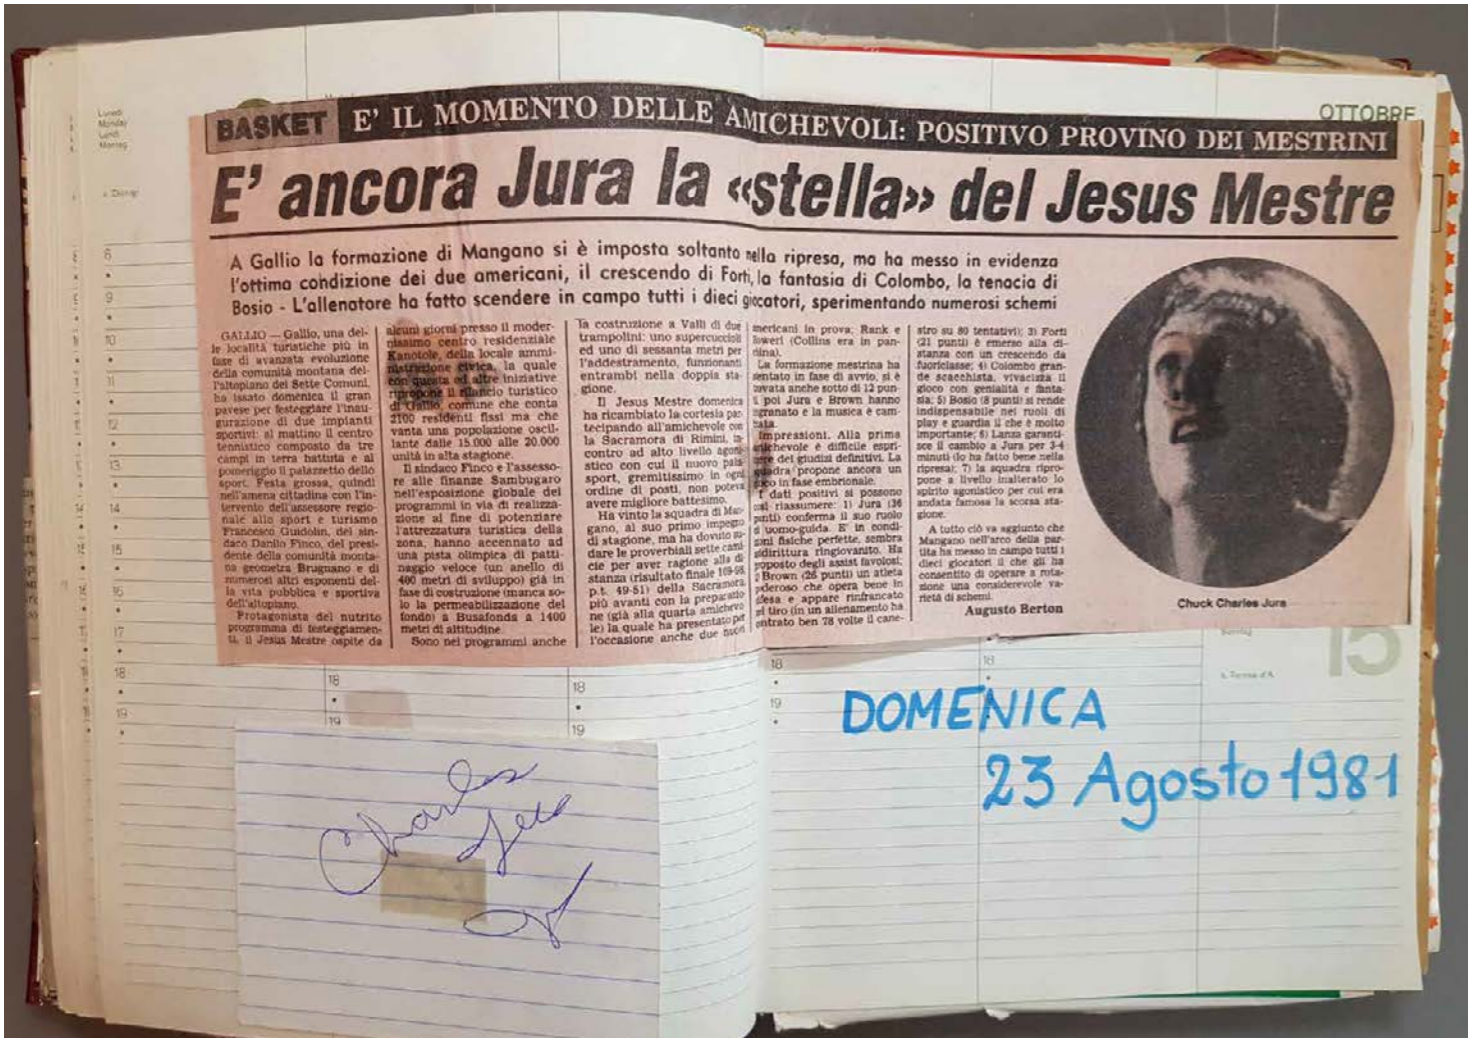 Lunedì
Monday
Lundi
Montag
OTTOBRE
BASKET E' IL MOMENTO DELLE AMICHEVOLI: POSITIVO PROVINO DEI MESTRINI
E' ancora Jura la «stella» del Jesus Mestre
A Gallio la formazione di Mangano si è imposta soltanto nella ripresa, ma ha messo in evidenza
l'ottima condizione dei due americani, il crescendo di Forti, la fantasia di Colombo, la tenacia di
Bosio - L'allenatore ha fatto scendere in campo tutti i dieci giocatori, sperimentando numerosi schemi
GALLIO — Gallio, una del-
le località turistiche più in
fase di avanzata evoluzione
della comunità montana del-
l'altopiano dei Sette Comuni,
ha issato domenica il gran
pavese per festeggiare l'inau-
gurazione di due impianti
sportivi: al mattino il centro
tennistico composto da tre
campi in terra battuta e al
pomeriggio il palazzetto dello
sport. Festa grossa, quindi
nell'amena cittadina con l'in-
tervento dell'assessore regio-
nale allo sport e turismo
Francesco Guidolin, del sin-
daco Danilo Finco, del presi-
dente della comunità monta-
na geometra Brugnano e di
numerosi altri esponenti del-
la vita pubblica e sportiva
dell'altopiano.
Protagonista del nutrito
programma di festeggiamen-
ti, il Jesus Mestre ospite da
alcuni giorni presso il moder-
nissimo centro residenziale
Kanotole, della locale ammi-
nistrazione civica, la quale
con questa ed altre iniziative
ripropone il rilancio turistico
di Gallio, comune che conta
2100 residenti fissi ma che
vanta una popolazione oscil-
lante dalle 15.000 alle 20.000
unità in alta stagione.
Il sindaco Finco e l'assesso-
re alle finanze Sambugaro
nell'esposizione globale dei
programmi in via di realizza-
zione al fine di potenziare
l'attrezzatura turistica della
zona, hanno accennato ad
una pista olimpica di patti-
naggio veloce (un anello di
400 metri di sviluppo) già in
fase di costruzione (manca so-
lo la permeabilizzazione del
fondo) a Busafonda a 1400
metri di altitudine.
Sono nei programmi anche
la costruzione a Valli di due
trampolini: uno supercuccioli
ed uno di sessanta metri per
l'addestramento, funzionanti
entrambi nella doppia sta-
gione.
Il Jesus Mestre domenica
ha ricambiato la cortesia par-
tecipando all'amichevole con
la Sacramora di Rimini, in-
contro ad alto livello agoni-
stico con cui il nuovo pala-
sport, gremitissimo in ogni
ordine di posti, non poteva
avere migliore battesimo.
Ha vinto la squadra di Man-
gano, al suo primo impegno
di stagione, ma ha dovuto su-
dare le proverbiali sette cami-
cie per aver ragione alla di-
stanza (risultato finale 109-98,
p.t. 49-51) della Sacramora
più avanti con la preparazio-
ne (già alla quarta amichevo-
le) la quale ha presentato per
l'occasione anche due nuovi
mericani in prova: Rank e
loweri (Collins era in pan-
dina).
La formazione mestrina ha
sentato in fase di avvio, si è
rovata anche sotto di 12 pun-
i, poi Jura e Brown hanno
agranato e la musica è cam-
bata.
Impressioni. Alla prima
amichevole è difficile espri-
mere dei giudizi definitivi. La
quadra propone ancora un
oco in fase embrionale.
I dati positivi si possono
così riassumere: 1) Jura (36
punti) conferma il suo ruolo
d uomo-guida. E' in condi-
oni fisiche perfette, sembra
ddirittura ringiovanito. Ha
poposto degli assist favolosi;
Brown (26 punti) un atleta
poderoso che opera bene in
difesa e appare rinfrancato
el tiro (in un allenamento ha
entrato ben 78 volte il cane-
stro su 80 tentativi); 3) Forti
(21 punti) è emerso alla di-
stanza con un crescendo da
fuoriclasse; 4) Colombo gran-
de scacchista, vivacizza il
gioco con genialità e fanta-
sia; 5) Bosio (8 punti) si rende
indispensabile nei ruoli di
play e guardia il che è molto
importante; 6) Lanza garanti-
sce il cambio a Jura per 3-4
minuti (lo ha fatto bene nella
ripresa); 7) la squadra ripro-
pone a livello inalterato lo
spirito agonistico per cui era
andata famosa la scorsa sta-
gione.
A tutto ciò va aggiunto che
Mangano nell'arco della par-
tita ha messo in campo tutti i
dieci giocatori il che gli ha
consentito di operare a rota-
zione una considerevole va-
rietà di schemi.
Augusto Berton
Chuck Charles Jura
15
8
9
10
11
12
13
14
15
16
17
18
19
18
19
18
19
18
19
18
DOMENICA
23 Agosto 1981
Charles